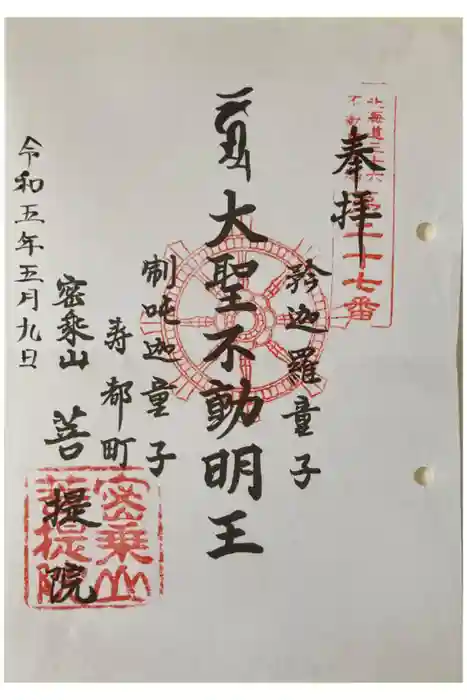 北海道三十六
不動
第二十七番
奉拝
矜迦羅童子
大聖不動明王
制吒迦童子
寿都町
密乗山
菩提院
令和五年五月九日
密乗山
菩提院